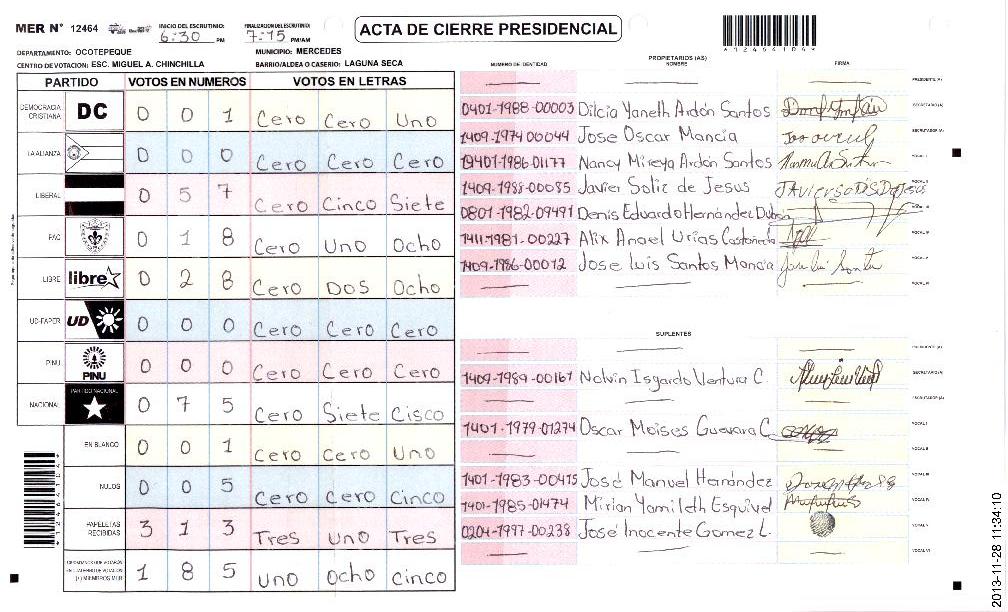 MER N° 12464
INICIO DEL ESCRUTINIO: 6:30 PM
FINALIZACION DEL ESCRUTINIO: 7:15 PM/AM
ACTA DE CIERRE PRESIDENCIAL
*12464104*
DEPARTAMENTO: OCOTEPEQUE
MUNICIPIO: MERCEDES
CENTRO DE VOTACION: ESC. MIGUEL A. CHINCHILLA
BARRIO/ALDEA O CASERIO: LAGUNA SECA
PARTIDO VOTOS EN NUMEROS VOTOS EN LETRAS
DEMOCRACIA CRISTIANA DC 0 0 1 Cero Cero Uno
LA ALIANZA 0 0 0 Cero Cero Cero
LIBERAL 0 5 7 Cero Cinco Siete
PAC 0 1 8 Cero Uno Ocho
LIBRE libre 0 2 8 Cero Dos Ocho
UD-FAPER UD 0 0 0 Cero Cero Cero
PINU PINU 0 0 0 Cero Cero Cero
NACIONAL PARTIDO NACIONAL 0 7 5 Cero Siete Cisco
EN BLANCO 0 0 1 Cero Cero Uno
NULOS 0 0 5 Cero Cero Cinco
PAPELETAS RECIBIDAS 3 1 3 Tres Uno Tres
CIUDADANOS QUE VOTARON EN CUADERNO DE VOTACION (+) MIEMBROS MER 1 8 5 Uno Ocho Cinco
PROPIETARIOS (AS)
NUMERO DE IDENTIDAD NOMBRE FIRMA
PRESIDENTE (A)
0401-1988-00003 Dilcia Yaneth Ardón Santos SECRETARIO (A)
1409-1974 00044 Jose Oscar Mancia ESCRUTADOR (A)
0401-1986-01177 Nancy Mireya Ardón Santos VOCAL I
1409-1988-00085 Javier Soliz de Jesus VOCAL II
0801-1982-09491 Denis Eduardo Hernández VOCAL III
1411-1981-00227 Alix Anael Urias Castañeda VOCAL IV
1409-1986-00012 Jose Luis Santos Mancia VOCAL V
VOCAL VI
SUPLENTES
PRESIDENTE (A)
1409-1989-00161 Nelvin Isgardo Ventura C. SECRETARIO (A)
ESCRUTADOR (A)
1401-1979-01274 Oscar Moises Guevara C. VOCAL I
VOCAL II
1401-1983-00415 José Manuel Hernández VOCAL III
1401-1985-01474 Mirian Yamileth Esquivel VOCAL IV
0204-1997-00238 José Inocente Gomez L. VOCAL V
VOCAL VI
2013-11-28 11:34:10